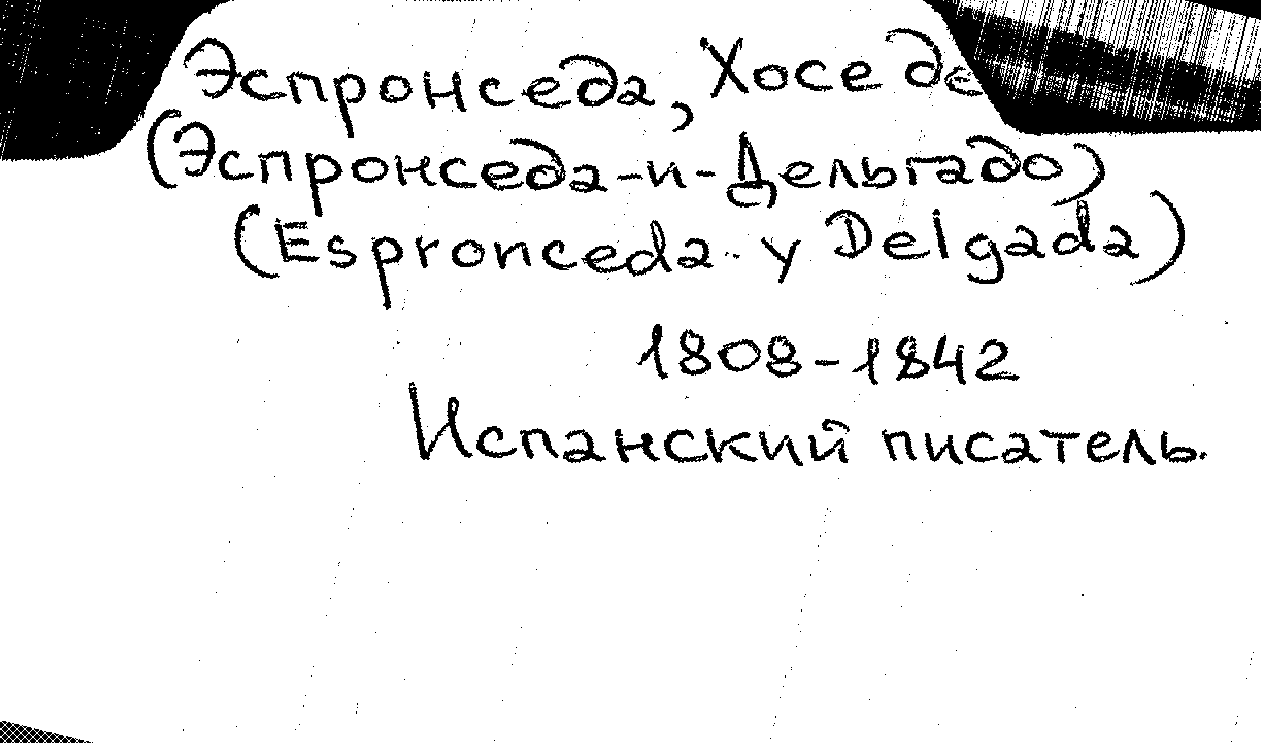 Эспронседа, Хосе де
(Эспронседа-и-Дельгадо)
(Espronceda y Delgada)
1808-1842
Испанский писатель.